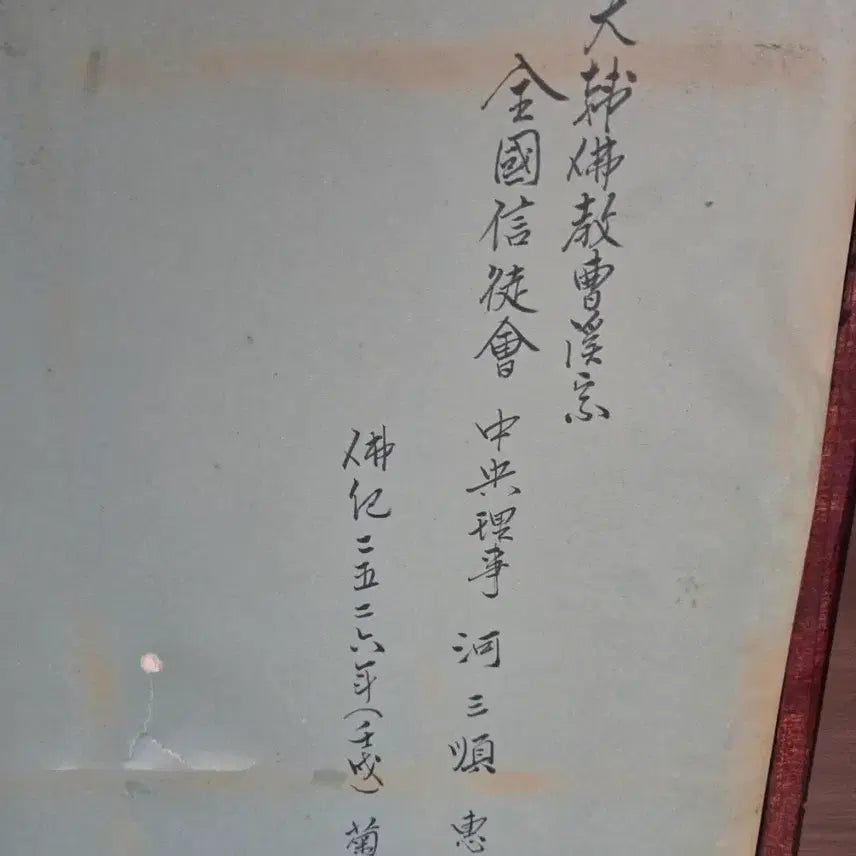 大韓佛敎曹溪宗
全國信徒會 中央理事 河三順 惠
佛紀二五二六年(壬戌) 菊